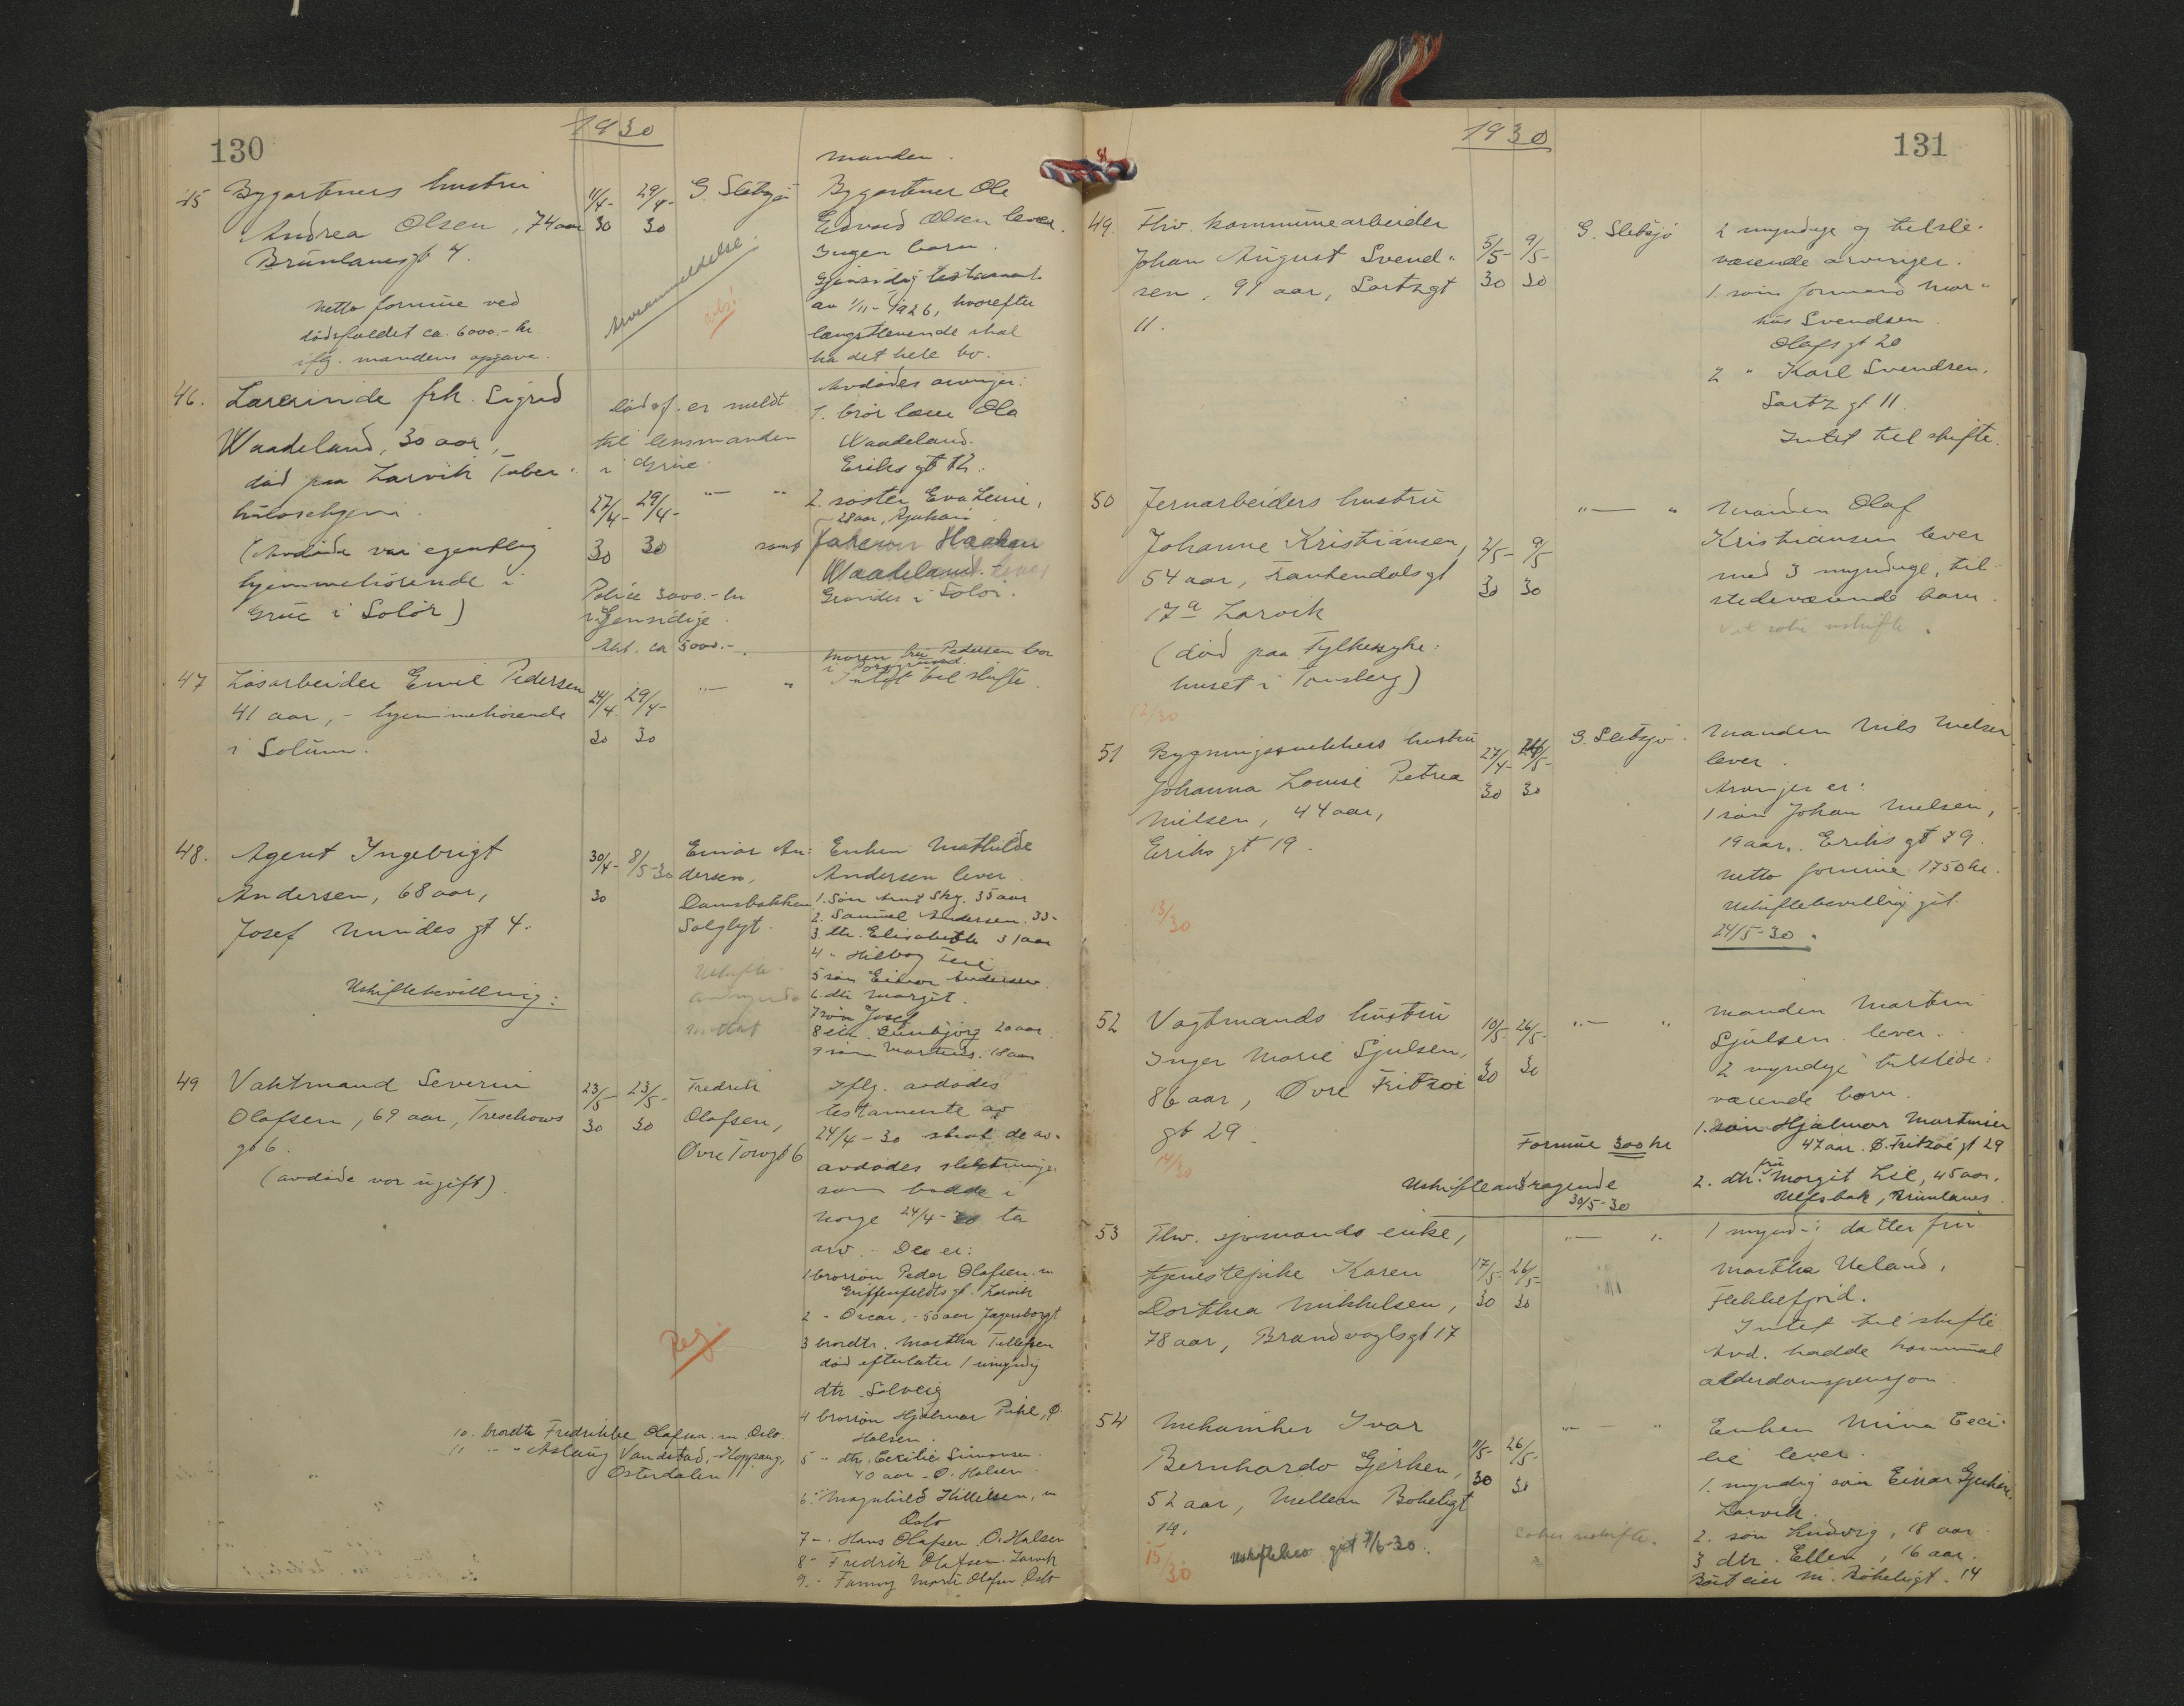 130
1930
45 Bygartners hustru
Andrea Olsen, 74 aar
Brunlanesgt 4.
Netto formue ved
dødsfaldet ca. 6000.- kr.
iflg. mandens opgave.
11/4- 30
29/4- 30
G. Slebsjø
Arveanmeldelse.
manden.
Bygartner Ole
Edvard Olsen lever.
Ingen barn.
Gjensidig testament
av 1/11-1926, hvorefter
længstlevende skal
ha det hele bo.
46. Lærerinde frk. Sigrid
Waadeland, 30 aar,
død paa Larvik Tuber-
kulosehjem.
(Avdøde var egentlig
hjemmehørende i
Grue i Solør)
Dødsf. er meldt
til lensmanden
i Grue.
27/4- 30
29/4- 30
"— "
Police 3000.- kr
i Gjensidige.
Akt. ca 5000.-
Avdødes arvinger:
1. bror lærer Ola
Waadeland.
Eriks gt 12.
2. søster Eva Lewi,
28 aar, Rjukan
samt Haakon
Waadeland.
Grinder i Solør.
47 Løsarbeider Emil Pedersen
41 aar, - hjemmehørende
i Solum.
24/4- 30
29/4- 30
"— "
Moren fru Pedersen bor
i Porsgrund.
Intet til skifte.
48. Agent Ingebrigt
Andersen, 68 aar,
Josef Mundes gt 4.
Uskiftebevilling:
30/4- 30
8/5-30
Einar An-
dersen,
Damsbakken
Solglyt.
Uskifte
Enken Mathilde
Andersen lever.
1. Søn Arnt Sky. 35 aar
2. Samuel Andersen. 33-
3. dtr. Elisabeth 31 aar
4 " Hilbog
5 søn Einar Andersen.
6. dtr Margit.
7 søn Josef
8 dtr. Gunbjørg 20 aar.
9 søn Martinus. 18 aar
49 Vaktmand Severin
Olafsen, 69 aar, Treschows
gt 6.
(avdøde var ugift).
23/5- 30
23/5- 30
Fredrik
Olafsen,
Øvre Torvgt 6
Reg.
Iflg. avdødes
testamente av
24/4-30 skal de av
avdødes slektninger
som bodde i
Norge 24/4-30 ta
arv. - Det er:
1 brorsøn Peder Olafsen. m
Griffenfeldts gt. Larvik
2 - Oscar, - 50 aar Jegersborggt
3 brordtr. Martha Tollefsen
død efterlater 1 umyndig
dtr Solveig
4 brorsøn Hjalmar Pihl, Ø.
Halsen.
5 " dtr. Cecilie Simonsen
40 aar - Ø. Halsen
6. " Magnhild Kittilsen, m
Oslo
7 - . Hans Olafsen. Ø. Halsen
8 " Fredrik Olafsen. Larvik
9. - Fanny Marie Olafsen Oslo
10. brordtr Fredrikke Olafsen. m. Oslo.
11 " - " Aslaug Vandstad, - Koppang,
Østerdalen
131
1930
49. Fhv. kommunearbeider
Johan August Svend-
sen, 91 aar, Sartzgt
11.
5/5- 30
9/5- 30
G. Slebsjø
2 myndige og tilste-
værende arvinger.
1. søn formand Mar-
kus Svendsen
Olafsgt 20
2 " Karl Svendsen,
Sartz gt 11.
Intet til skifte.
50 Jernarbeiders hustru
Johanne Kristiansen,
54 aar, Frankendalsgt
17a Larvik
(død paa Fylkessyke-
huset i Tønsberg)
12/30
2/5- 30
9/5 30
"— "
Manden Olaf
Kristiansen lever
med 3 myndige, til-
stedeværende barn.
51 Bygningssnekkers hustru
Johanna Louise Petrea
Nielsen, 44 aar,
Eriks gt 19.
13/30
27/4- 30
G. Slebsjø.
Manden Nils Nielsen
lever.
Arvinger er:
1 søn Johan Nielsen,
19 aar, Eriks gt 19.
Netto formue 1750 kr.
Uskiftebevilling git
24/5-30.
52 Vagtmands hustru
Inger Marie Sjulsen,
86 aar, Øvre Fritzøe
gt 29.
14/30
10/5- 30
26/5- 30
"— "
Formue 300 kr
Uskifteandragende
30/5-30
Manden Martin
Sjulsen lever.
2 myndige tilstede-
værende barn.
1. søn Hjalmar Martinsen
47 aar. Ø. Fritzøe gt 29
2. dtr. fru Margit Lie, 45 aar,
Ulfsbak, Brunlanes.
53 Fhv. sjømands enke,
tjenestepike Karen
Dorthea Mikkelsen,
78 aar, Brandvagtsgt 17
17/5- 30
26/5- 30
"— "
1 mynd- datter fru
Martha Ueland,
Flekkefjord.
Intet til skifte
Avd. hadde kommunal
alderdomspensjon.
54 Mekaniker Ivar
Bernhardo Gjerken,
52 aar, Mellem Bøkeligt
14.
15/30
Uskiftebev git 7/6-30.
11/5- 30
26/5- 30
"— "
Enken Mina Ceci-
lie lever.
1. myndig søn Einar Gjerken,
Larvik.
2. søn Ludvig, 18 aar
3 dtr. Ellen, 16 aar.
Boet eier M. Bøkeligt. 14